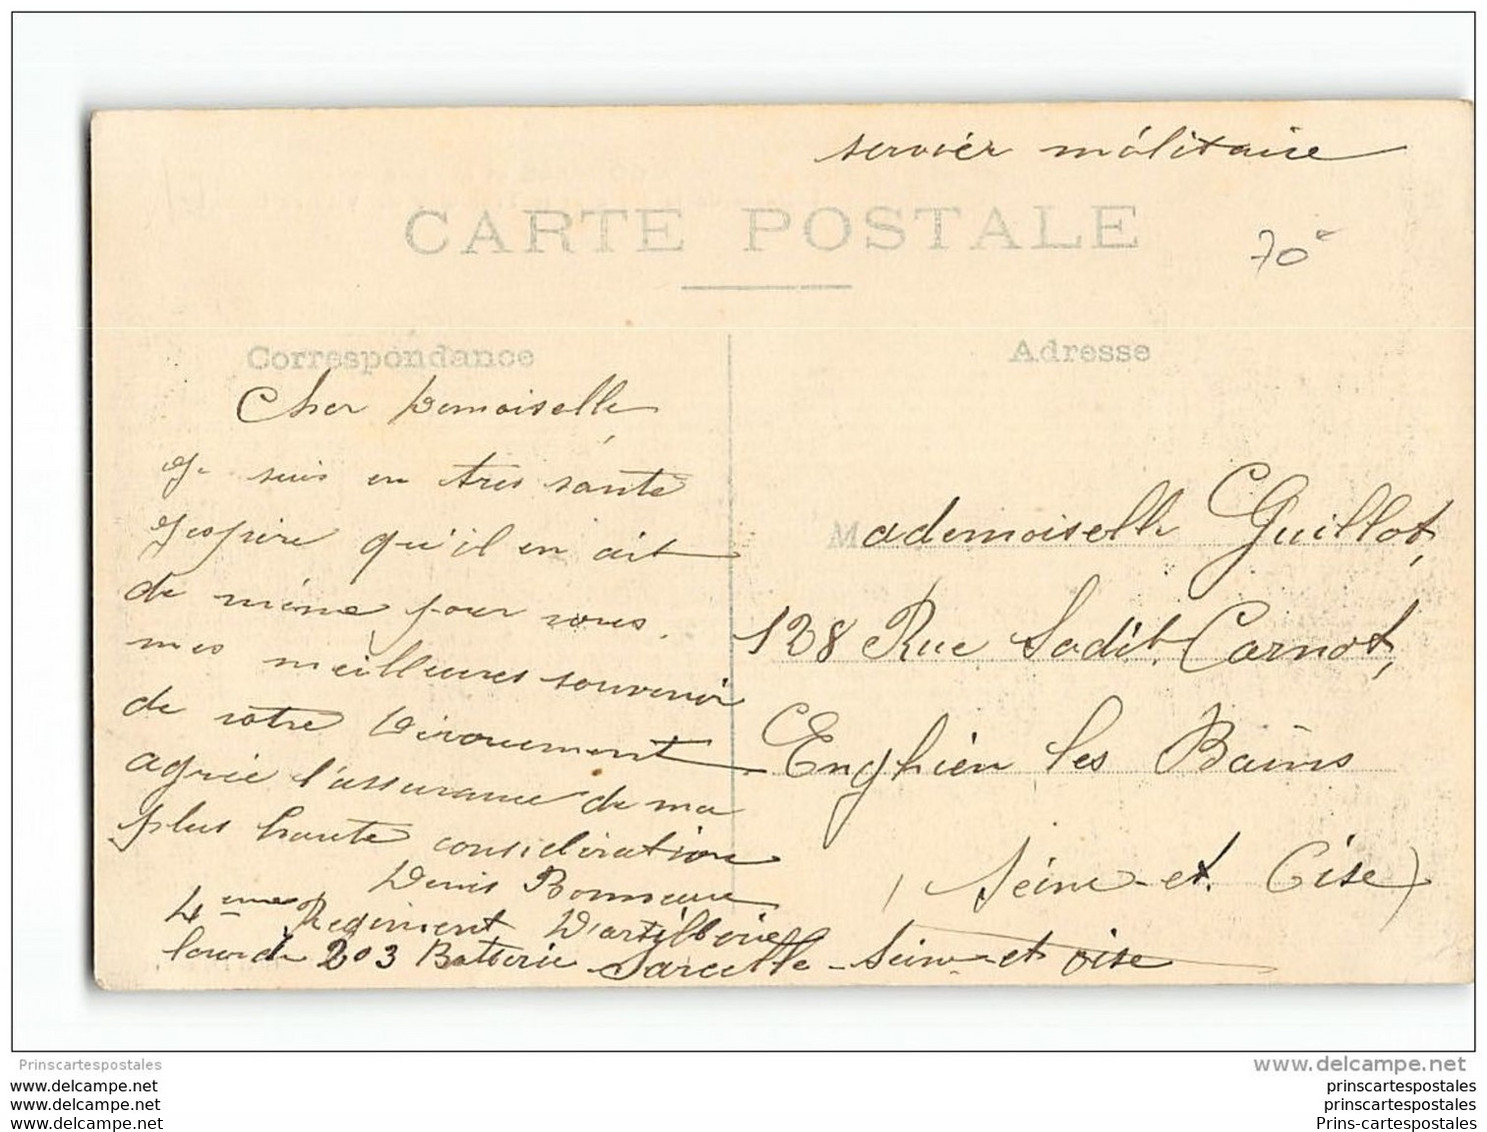 servier militaire
CARTE POSTALE
70
Correspondance
Adresse
Cher Demoiselle
Je suis en tres santé
J'espire qu'il en ait
de même pour vous.
mes meilleures souvenir
de votre Dévouement
agrée l'assurance de ma
plus haute considération
Denis Bonneau
4ème Regiment D'artillerie
lourde 203 Batterie Sarcelle - Seine et Oise
Mademoiselle Guillot,
128 Rue Sadit Carnot,
Enghien les Bains
(Seine et Oise)
Prinscartespostales
www.delcampe.net
www.delcampe.net
www.delcampe.net
www.delcampe.net
prinscartespostales
prinscartespostales
Prins-cartespostales